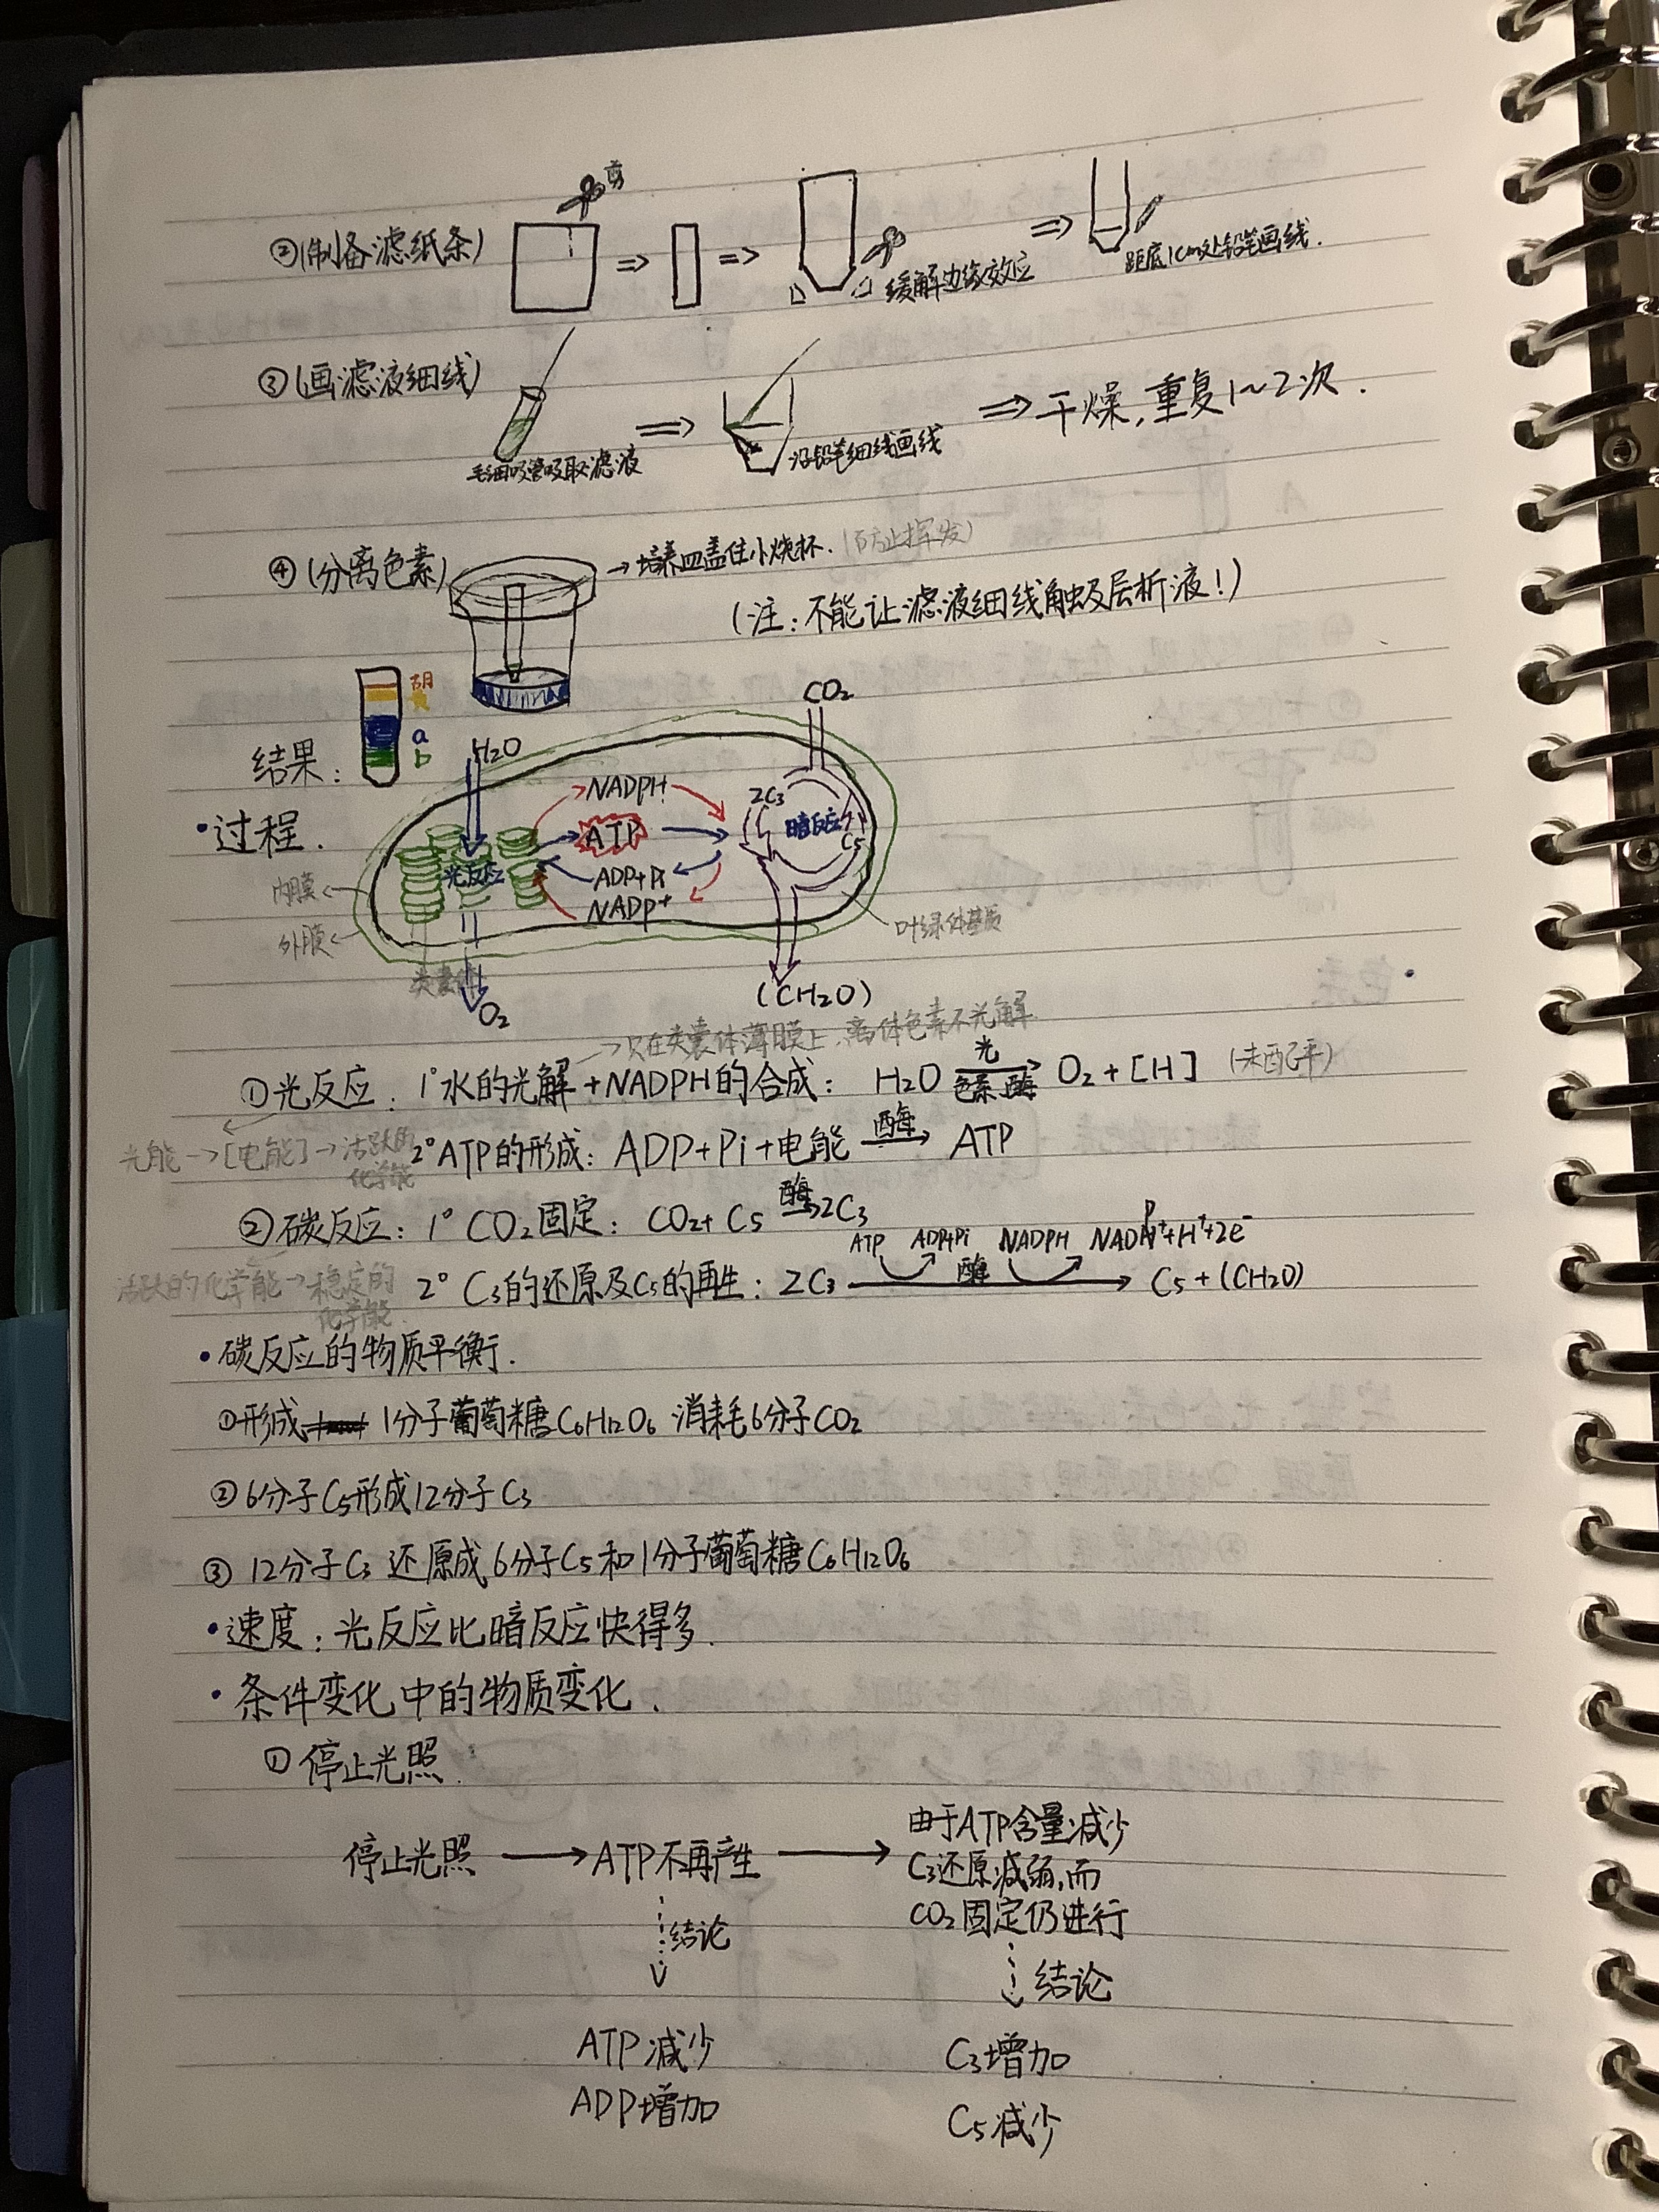 剪
②(制备滤纸条)
缓解边缘效应
距底1cm处铅笔画线.
③(画滤液细线)
毛细吸管吸取滤液
沿铅笔细线画线
⇒干燥,重复1~2次.
④(分离色素)
→培养皿盖住小烧杯.(防止挥发)
(注:不能让滤液细线触及层析液!)
结果:
胡
黄
a
b
·过程.
H2O
CO2
NADPH
ATP
ADP+Pi
NADP+
光反应
2C3
暗反应
C5
内膜
外膜
类囊体
叶绿体基质
O2
(CH2O)
→只在类囊体薄膜上,离体色素不光解
①光反应:1°水的光解+NADPH的合成: H2O 光→色素 酶 O2+[H] (未配平)
光能→[电能]→活跃的化学能
2°ATP的形成:ADP+Pi+电能 酶→ ATP
②碳反应:1°CO2固定: CO2+C5 酶→2C3
活跃的化学能→稳定的化学能
ATP ADP+Pi NADPH NADP++H++2e-
2° C3的还原及C5的再生:2C3 酶→ C5+(CH2O)
·碳反应的物质平衡.
①形成 1分子葡萄糖C6H12O6 消耗6分子CO2
②6分子C5形成12分子C3
③ 12分子C3 还原成6分子C5和1分子葡萄糖C6H12O6
·速度:光反应比暗反应快得多.
·条件变化中的物质变化.
①停止光照.
停止光照→ATP不再产生→
由于ATP含量减少
C3还原减弱,而
CO2固定仍进行
结论
结论
ATP减少
ADP增加
C3增加
C5减少